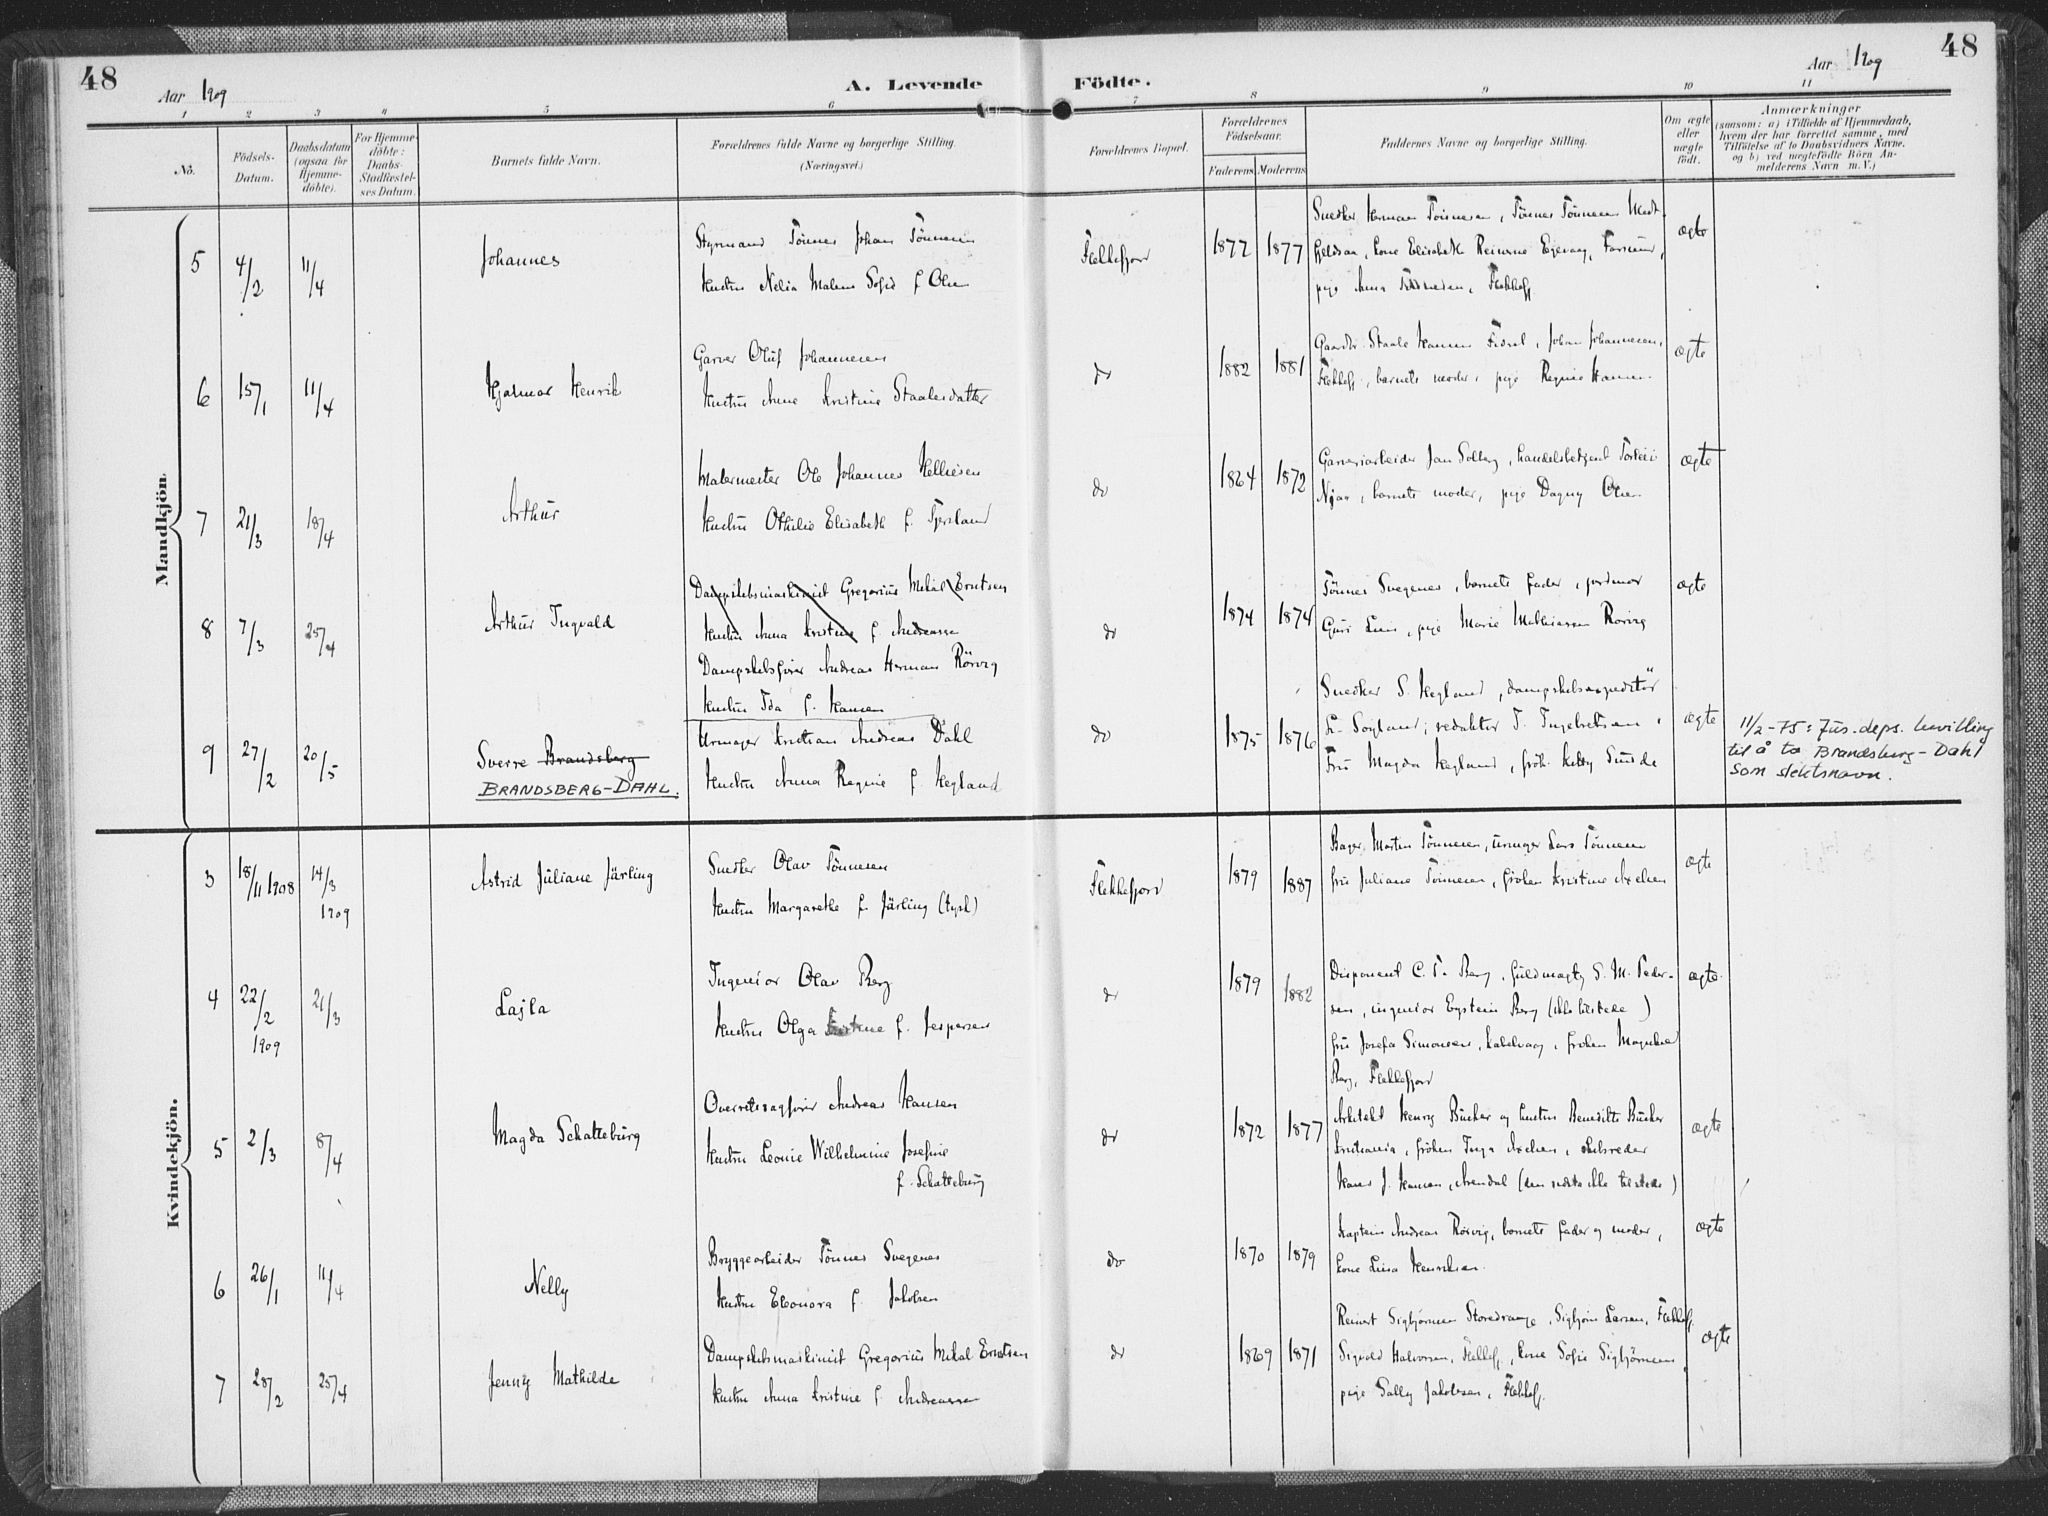 48
Aar 1909
A. Levende Födte.
Aar 1909
48
1 2 3 4 5 6 7 8 9 10 11
No.
Födsels-Datum.
Daabsdatum (ogsaa for Hjemme-döbte).
For Hjemme-döbte: Daabs-Stadfæstel-ses Datum.
Barnets fulde Navn.
Forældrenes fulde Navne og borgerlige Stilling.
(Næringsvei.)
Forældrenes Bopæl.
Forældrenes Födselsaar.
Faderens Moderens
Faddernes Navne og borgerlige Stilling.
Om ægte eller uægte født.
Anmærkninger
(saasom: a) i Tilfælde af Hjemmedaab,
hvem der har forrettet samme, med
Tilföielse af to Daabsvidners Navne,
og b) ved uegtefödte Börn An-
melderens Navn m. V.)
Mandkjön.
5 4/2 11/4 Johannes
Styrmand Tönnes Johan Tönnesen
Hustru Nelia Malene Sofie f. Olsen
Flekkefjord 1877 1877
Snedker Herman Tönnesen, Tönnes Tönnesen
kone Elisabeth
pige Anna Tönnesen, Flekkefj
ægte
6 15/1 11/4 Hjalmar Henrik
Garver Oluf Johannesen
Hustru Anne Kristine Staalesdatter
do 1882 1881
Gaardbr. Staale Hansen, Johan Johannesen,
Flekkefj., barnets moder, pige Regine Hansen.
ægte
7 21/3 18/4 Arthur
Malermester Ole Johannes Helliesen
Hustru Othilie Elisabeth f. Fjersland
do 1864 1872
Garveriarbeider Jan Solberg, handelsbetjent
Njaa, barnets moder, pige Dagny Olsen
ægte
8 7/3 25/4 Arthur Ingvald
Dampskibsmaskinist Gregorius Mikal Erntsen
Hustru Anna Kristine f. Andreassen
Dampskibsförer Andreas Herman Rörvig
Hustru Ida f. Hansen
do 1874 1874
Tönnes Svegenes, barnets fader, jordmor
Guri Lien, pige Marie Mathiassen Rörvig
ægte
9 27/2 20/5 Sverre Brandsberg
BRANDSBERG-DAHL.
Urmager Kristian Andreas Dahl
Hustru Anna Regine f. Hegland
do 1875 1876
Snedker S. Hegland, dampskibsexpeditör
redaktör T. Ingebretsen,
Fru Magda Hegland, fröh. Kitty Sunde
ægte
11/2-75: Jus. deps. bevilling
til å ta Brandsberg-Dahl
som slektsnavn.
Kvindekjön.
3 18/11 1908 14/3 1909 Astrid Juliane Järling
Snedker Olav Tönnesen
Hustru Margarethe f. Järling (tysk)
Flekkefjord 1879 1887
Bager Martin Tönnesen, urmager Lars Tönnesen
fru Juliane Tönnesen, fröken Kristine Axelsen
ægte
4 22/2 1909 21/3 Lajla
Ingeniör Olav Berg
Hustru Olga Kristine f. Jespersen
do 1879 1882
Disponent C. T. Berg, fuldmægtig S. M. Peder-
sen, ingeniör Eystein Berg (ikke tilstede)
fru Josefa Simonsen, Kabelvaag, fröken Magnhild
Berg, Flekkefjord
ægte
5 2/3 8/4 Magda Schatteburg
Overretssagförer Andreas Hansen
Hustru Leonie Wilhelmine Josefine
f. Schatteburg
do 1872 1877
Arkitekt Henry Bucher og hustru Benedikte Bucher
Kristiania, fröken Inga Axelsen, skibsreder
Hans J. Hansen, Arendal (den sidste ikke tilstede)
ægte
6 26/1 11/4 Nelly
Bryggearbeider Tönnes Svegenes
Hustru Eleonora f. Jakobsen
do 1870 1879
Kaptein Andreas Rörvig, barnets fader og moder,
kone Lina Henriksen.
ægte
7 28/2 25/4 Jenny Mathilde
Dampskibsmaskinist Gregorius Mikal Erntsen
Hustru Anna Kristine f. Andreassen
do 1869 1871
Reinert Sigbjörnsen Storedrange, Sigbjörn Larsen, Flekkefj.
Sigvald Halvorsen, Flekkefj, kone Sofie Sigbjörnsen,
pige Sally Jakobsen, Flekkefj.
ægte